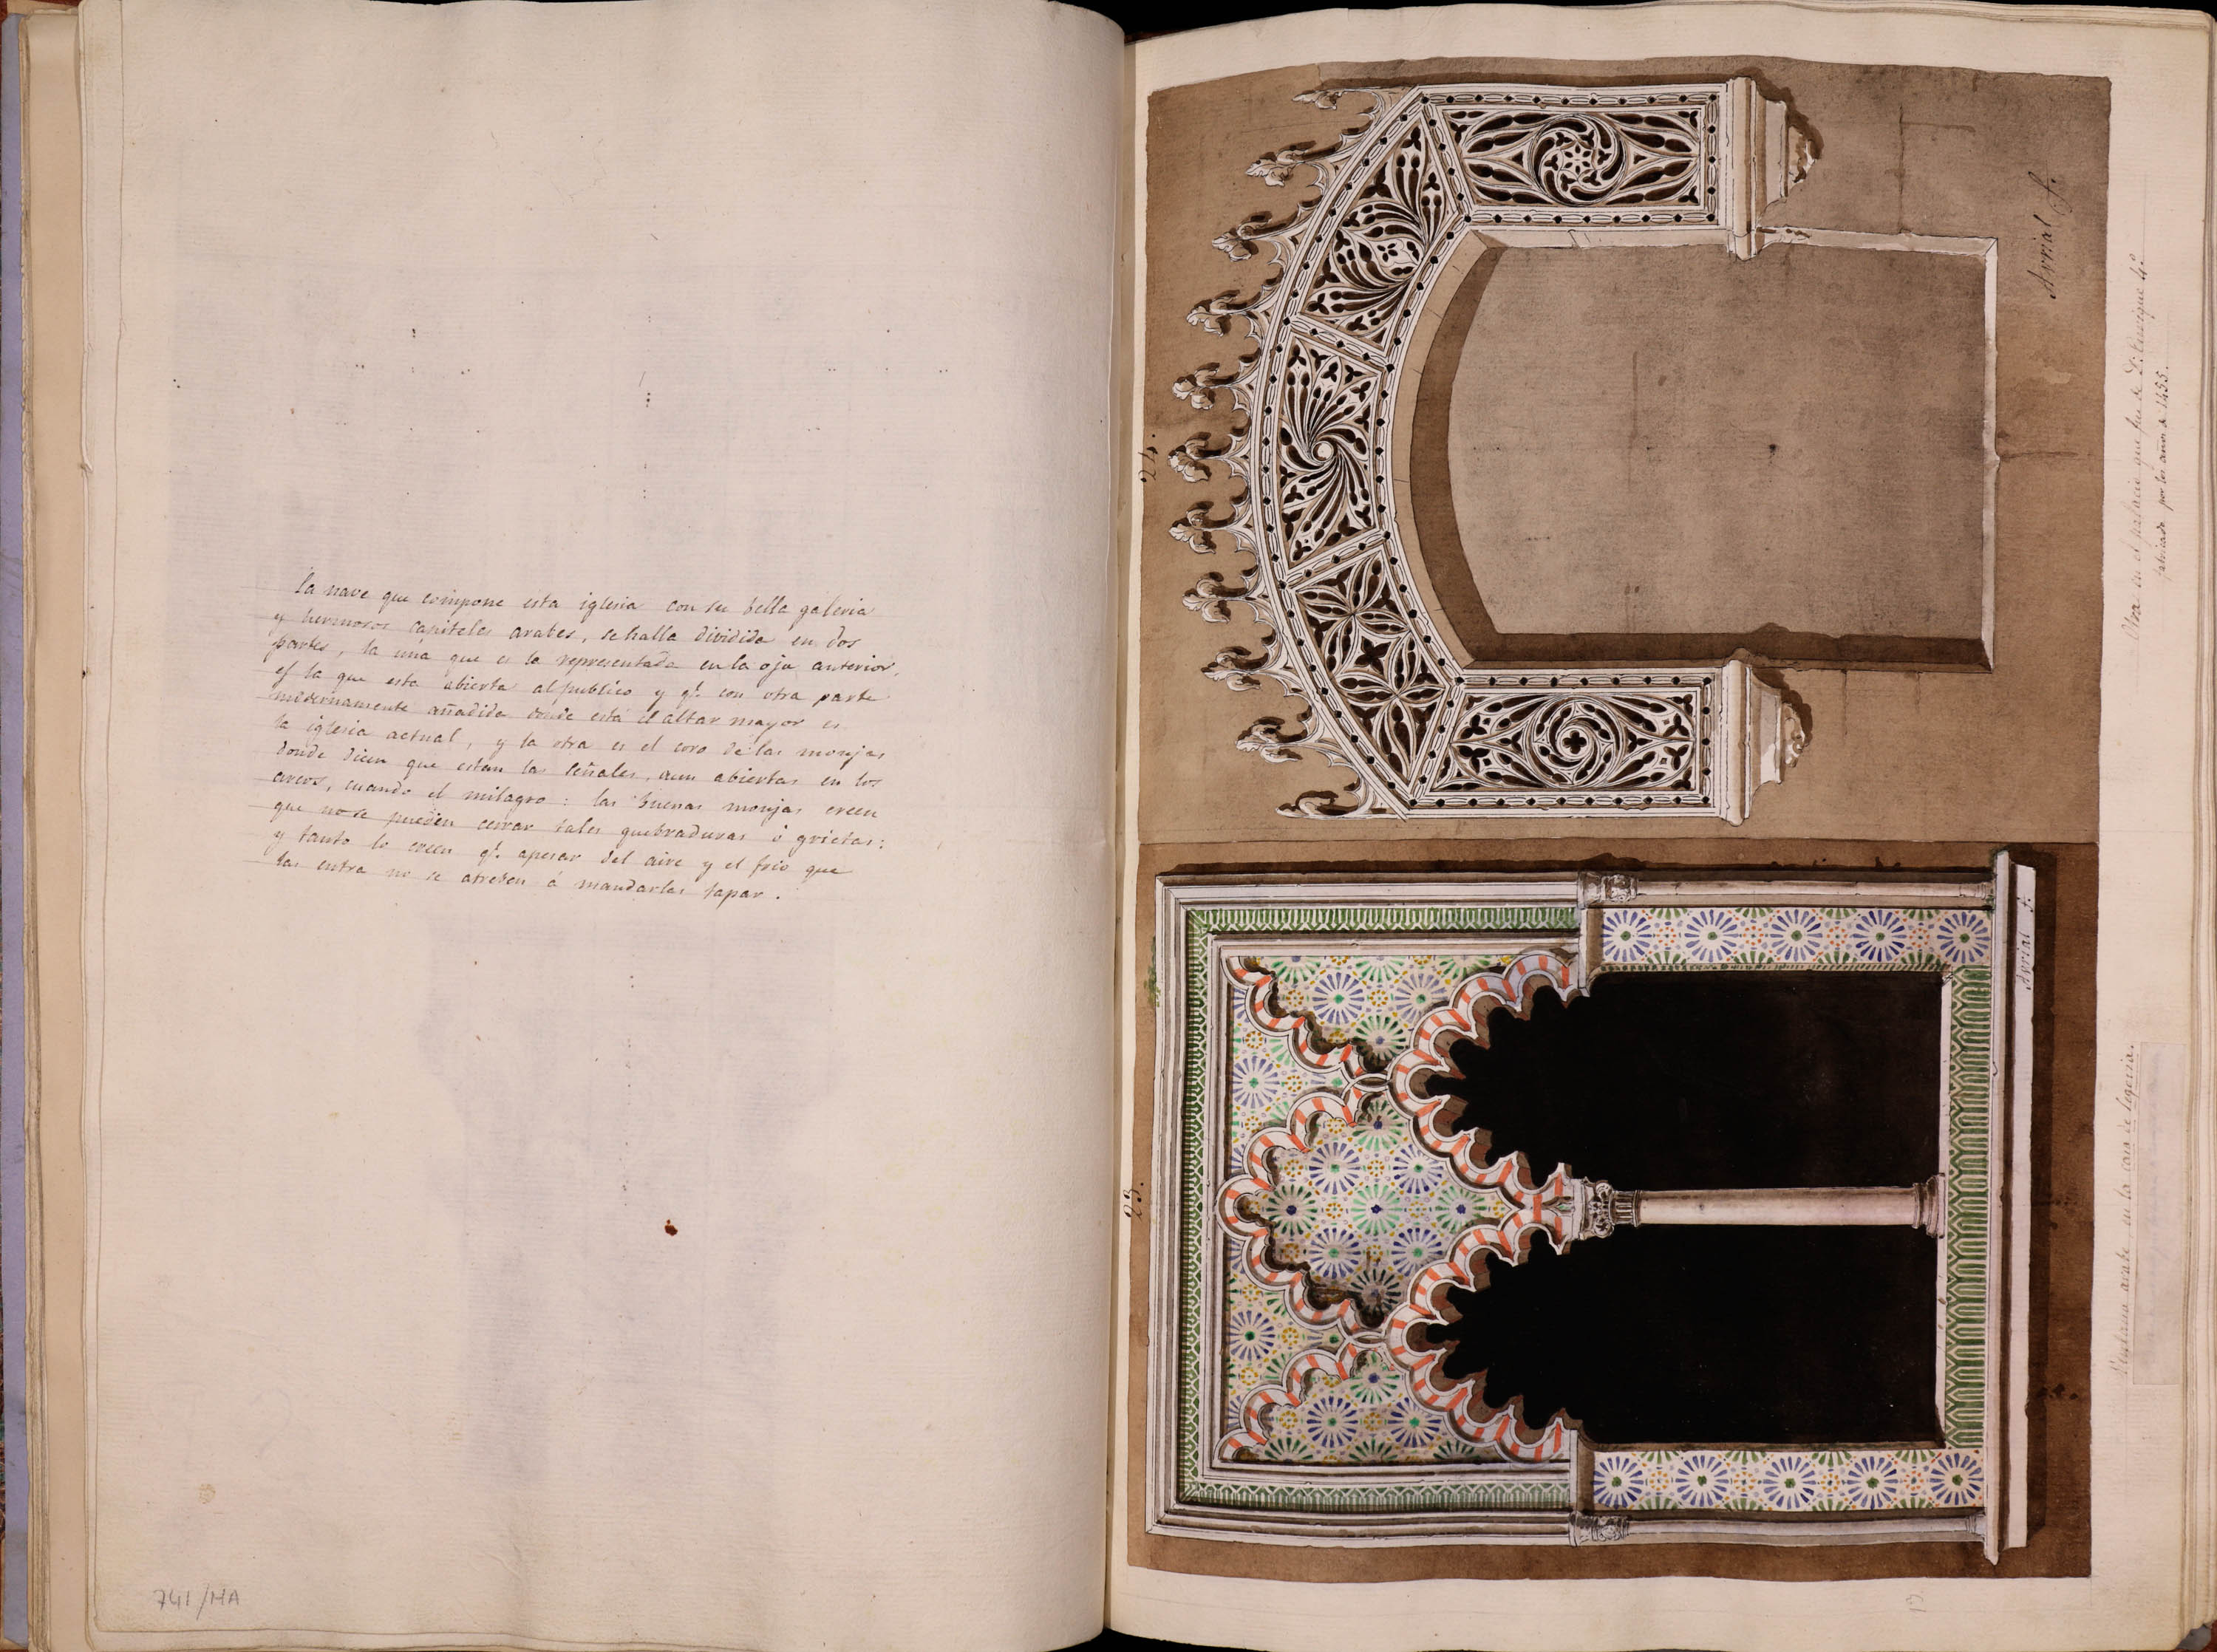 La nave que compone esta iglesia con su bella galeria
y hermosos capiteles arabes, se halla dividida en dos
partes, la una que es la representada en la oja anterior,
es la que esta abierta al publico y q.e con otra parte
modernamente añadida donde está el altar mayor es
la iglesia actual, y la otra es el coro de las monjas
donde dicen que estan las señales, aun abiertas en los
arcos, cuando el milagro: las buenas monjas creen
que no se pueden cerrar tales quebraduras ó grietas:
y tanto lo creen q.e apesar del aire y el frio que
las entra no se atreben á mandarlas tapar.
741/HA
24.
Avrial f.
Otra en el palacio que fue de D. Enrique 4.o
fabricado por los años de 1455.
23.
Avrial f.
Ventana arabe en la casa de Segovia.
13